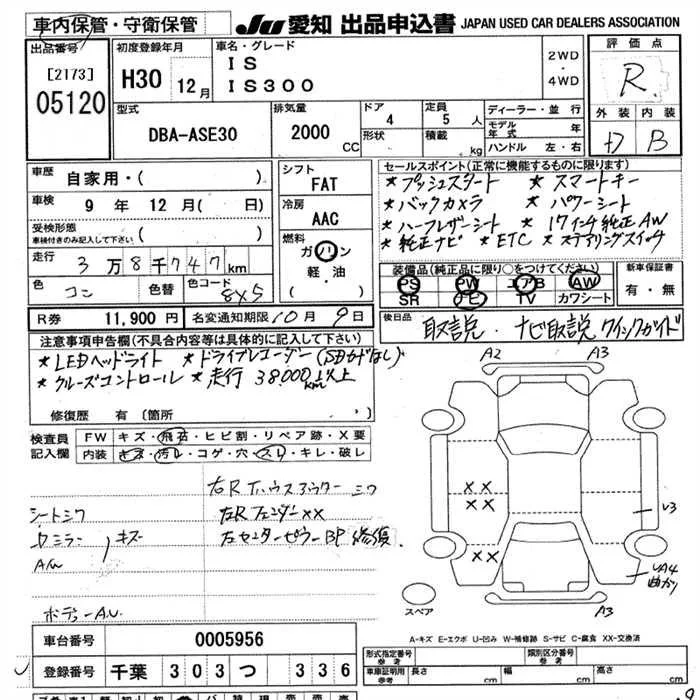 車内保管・守衛保管
JU 愛知 出品申込書 JAPAN USED CAR DEALERS ASSOCIATION
出品番号
[2173]
05120
初度登録年月
H30 12月
車名・グレード
IS
IS300
2WD
・
4WD
評価点
R
外装 内装
B
型式
DBA-ASE30
排気量
2000 CC
ドア
4
形状
定員
5 人
積載
kg
ディーラー・並行
モデル年式 年
ハンドル 左・右
車歴
自家用・( )
車検
9 年 12 月( 日)
受検形態
車検付きのみ記入して下さい ( )
走行
3万8千747km
色
コン
色替
色コード
8X5
シフト
FAT
冷房
AAC
燃料
ガソリン
軽・油
( )
セールスポイント(正常に機能するものに限ります)
★プッシュスタート ★スマートキー
★バックカメラ ★パワーシート
★ハーフレザーシート ★17インチ純正AW
★純正ナビ ★ETC ★ステアリングスイッチ
装備品(純正品に限り○をつけてください)
PS PW エアB AW
SR ナビ TV カワシート
新車保証書
有・無
R券 11,900 円 名変通知期限 10月 9日
後日品
取説・ナビ取説 クイックガイド
注意事項申告欄(不具合内容等は具体的に記入して下さい)
★LEDヘッドライト ★ドライブレコーダー(SDカードなし)
★クルーズコントロール ★走行 38000km以上
修復歴 有 (箇所 )
検査員記入欄
FW キズ・飛石・ヒビ割・リペア跡・X要
内装 キズ・汚レ・コゲ・穴・スレ・キレ・破レ
右Rインハウスアウター シワ
シートシワ
左Rフェンダー XX
キズ
左センターピラーBP 修復
AW
ボデーAU
A2 A3
XX
XX
XX
U3
UA4
曲がり
A3
スペア
A-キズ E-エクボ U-凹み W-補修跡 S-サビ C-腐食 XX-交換済
車台番号 0005956
登録番号 千葉 303 つ 336
形式指定番号
参考
類別区分番号
参考
車庫証明用
参考
長さ
cm
幅
cm
高さ
cm